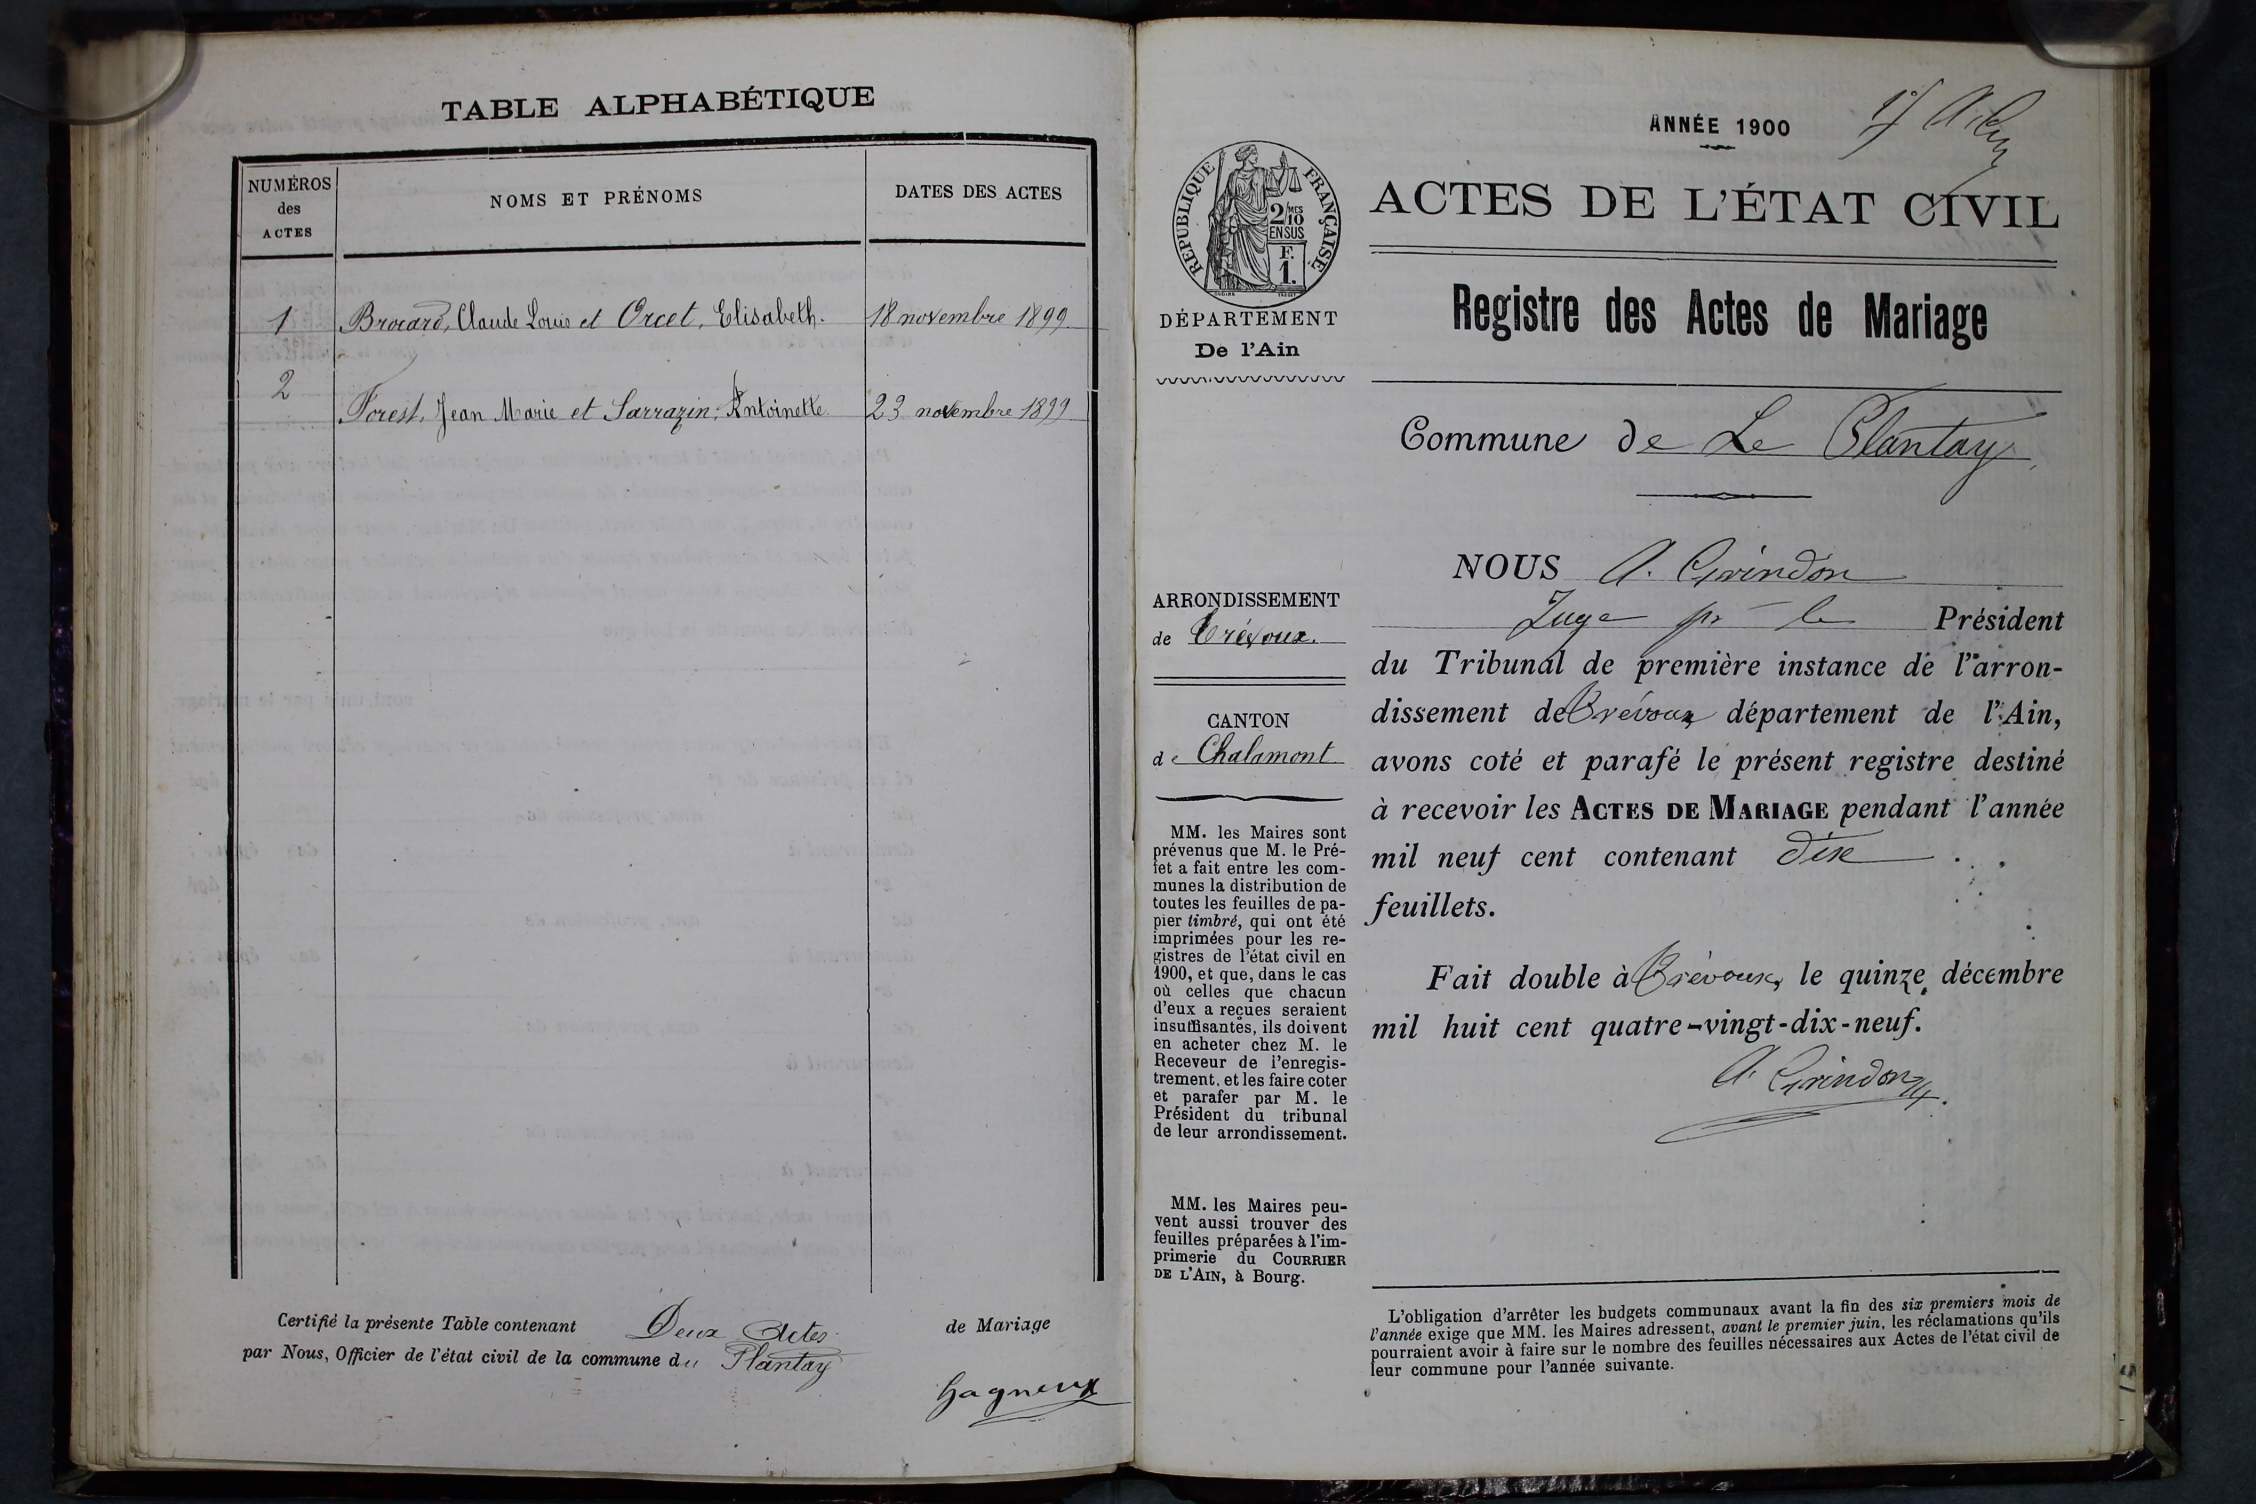 TABLE ALPHABÉTIQUE
NUMÉROS
des
ACTES
NOMS ET PRÉNOMS
DATES DES ACTES
1 Brocard, Claude Louis et Orcet, Elisabeth. 18 novembre 1899
2
Forest, Jean Marie et Sarrazin, Antoinette. 23 novembre 1899
Certifié la présente Table contenant Deux Actes de Mariage
par Nous, Officier de l'état civil de la commune du Plantay
Gagneux
ANNÉE 1900
RÉPUBLIQUE FRANÇAISE
2/10 MES
EN SUS
F.
1.
DÉPARTEMENT
De l'Ain
ARRONDISSEMENT
de Trévoux.
CANTON
de Chalamont
MM. les Maires sont
prévenus que M. le Pré-
fet a fait entre les com-
munes la distribution de
toutes les feuilles de pa-
pier timbré, qui ont été
imprimées pour les re-
gistres de l'état civil en
1900, et que, dans le cas
où celles que chacun
d'eux a reçues seraient
insuffisantes, ils doivent
en acheter chez M. le
Receveur de l'enregis-
trement, et les faire coter
et parafer par M. le
Président du tribunal
de leur arrondissement.
MM. les Maires peu-
vent aussi trouver des
feuilles préparées à l'im-
primerie du COURRIER
DE L'AIN, à Bourg.
ACTES DE L'ÉTAT CIVIL
Registre des Actes de Mariage
Commune de Le Plantay
NOUS A. Grindon
Juge pr le Président
du Tribunal de première instance de l'arron-
dissement de Trévoux département de l'Ain,
avons coté et parafé le présent registre destiné
à recevoir les ACTES DE MARIAGE pendant l'année
mil neuf cent contenant dix
feuillets.
Fait double à Trévoux, le quinze décembre
mil huit cent quatre-vingt-dix-neuf.
A. Grindon
L'obligation d'arrêter les budgets communaux avant la fin des six premiers mois de
l'année exige que MM. les Maires adressent, avant le premier juin, les réclamations qu'ils
pourraient avoir à faire sur le nombre des feuilles nécessaires aux Actes de l'état civil de
leur commune pour l'année suivante.